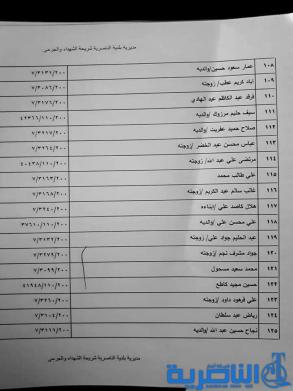 مديرية بلدية الناصرية شريحة الشهداء والجرحى
١٠٨ عمار سعود حسين/والديه ٧/٣١٣٦/٢٠٠
١٠٩ اياد كريم عطب/ زوجته ٧/٣٠٨٦/٢٠٠
١١٠ فرقد عبد الكاظم عبد الهادي ٧/٣١٧٦/٢٠٠
١١١ سيف حليم مرزوك/والديه ٤٢٣٦٦/١١٠/٢٠٠
١١٢ صلاح حميد عفريت/والديه ٧/٣٩١٧/٢٠٠
١١٣ عباس محسن عبد الخضر/زوجته ٧/٣٢٦٤/٢٠٠
١١٤ مرتضى علي عبد الله/ زوجته ٤٠٤٣٨/١١٠/٢٠٠
١١٥ علي طالب محمد ٧/٣١٦٣/٢٠٠
١١٦ غالب سالم عبد الكريم/زوجته ٧/٣١٦٨/٢٠٠
١١٧ هلال كاصد علي/ابناءه ٧/٣٢٤٠/٢٠٠
١١٨ علي محسن علي/والديه ٣٧٦١٠/١١٠/٢٠٠
١١٩ عبد الحليم جواد علي/ زوجته ٧/٣١٣٢/٢٠٠
١٢٠ جواد مشرف نجم /زوجته ٧/٣٢٧٩/٢٠٠
١٢١ محمد سعيد مسحول ٧/٣٠٩٩/٢٠٠
١٢٢ حسين مجيد كاطع ٤١٩٤٨/١١٠/٢٠٠
١٢٣ علي فرهود داود/زوجته ٧/٣٢٦٠/٢٠٠
١٢٤ رياض عبد سلطان ٧/٣١٠٤/٢٠٠
١٢٥ نجاح حسين عبد الله/والديه ٧/٣١١٦/٢٠٠
مديرية بلدية الناصرية شريحة الشهداء والجرحى
الناصرية